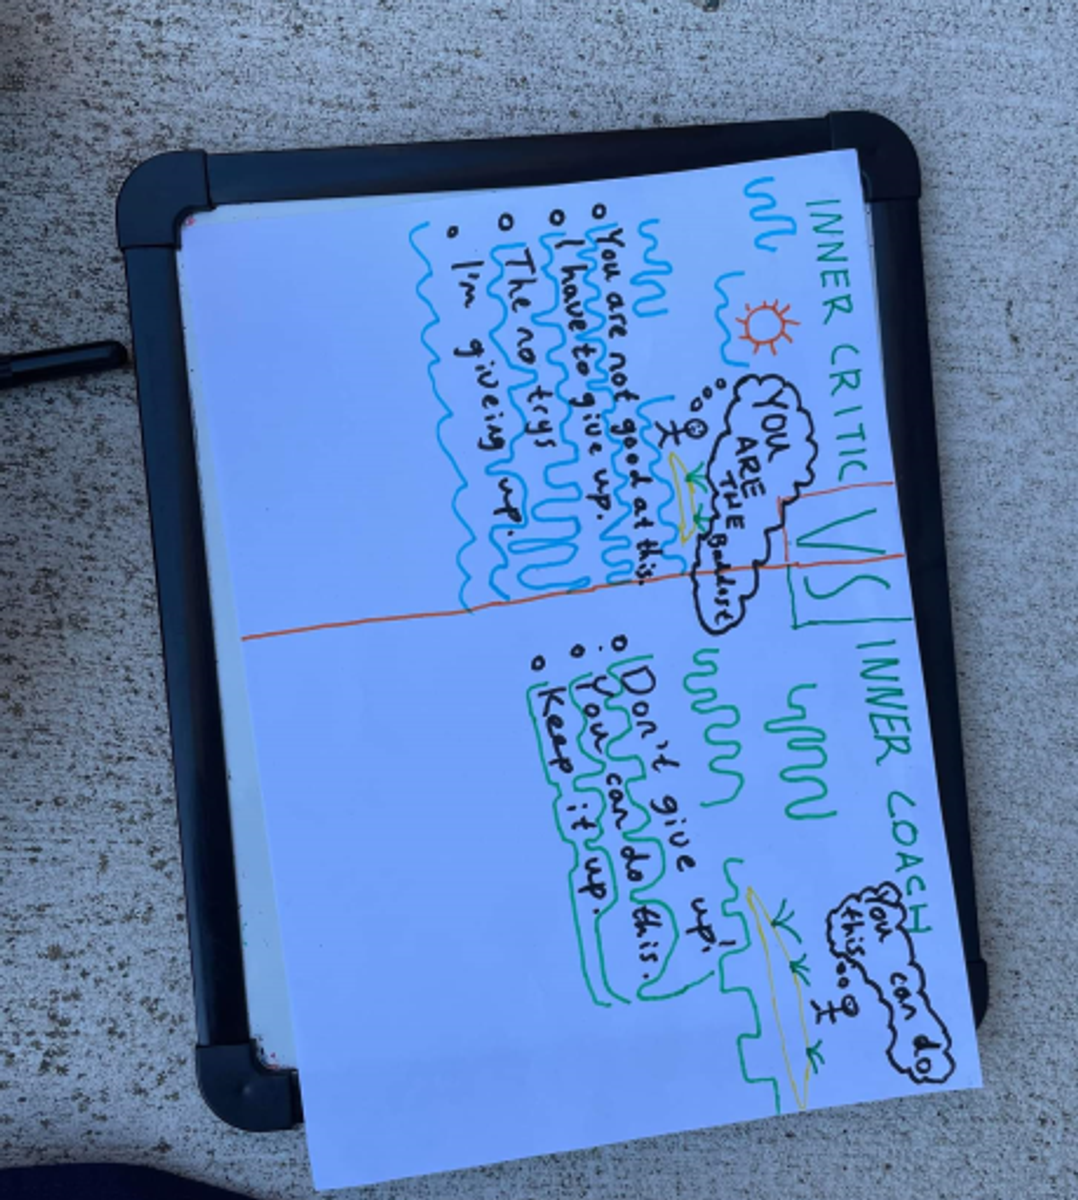 INNER CRITIC VS INNER COACH
YOU
ARE
THE
Baddist
• You are not good at this.
• I have to give up.
• The no trys
• I'm giveing up.
You can do
this
• Don't give up!
• You can do this.
• Keep it up.